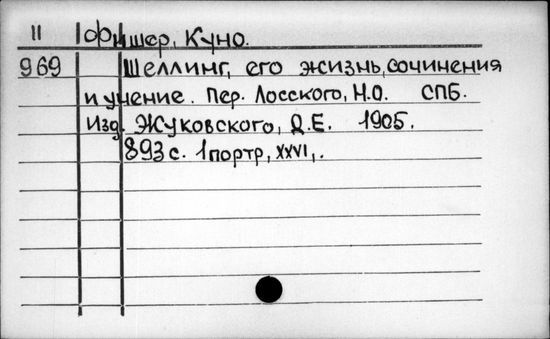 II Фишер, Куно.
969 Шеллинг, его жизнь, сочинения
и учение. Пер. Лосского, Н.О. СПБ.
Изд. Жуковского, Д.Е. 1905.
893 с. 1 портр, XXVI,.